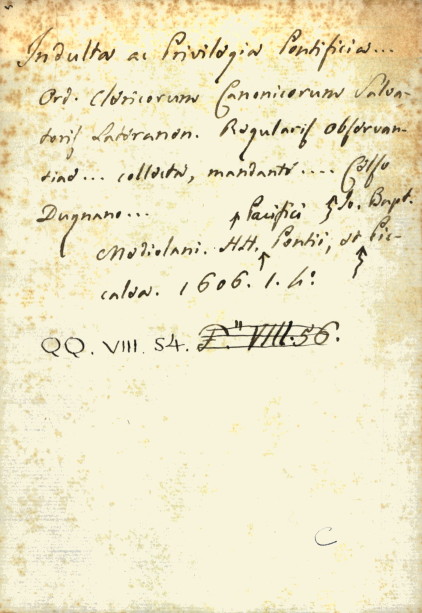 Indulta ac Privilegia Pontificia...
Ord. Clericorum Canonicorum Salva-
toris Lateranen. Regularis Observan-
tiae... collecta, mandante.... Celso
Dugnano... Pacifici Jo. Bapt.
Mediolani. HH. Pontii, et Pic-
calea. 1606. 1. 4°.
QQ. VIII. 54. VIII.56.
C